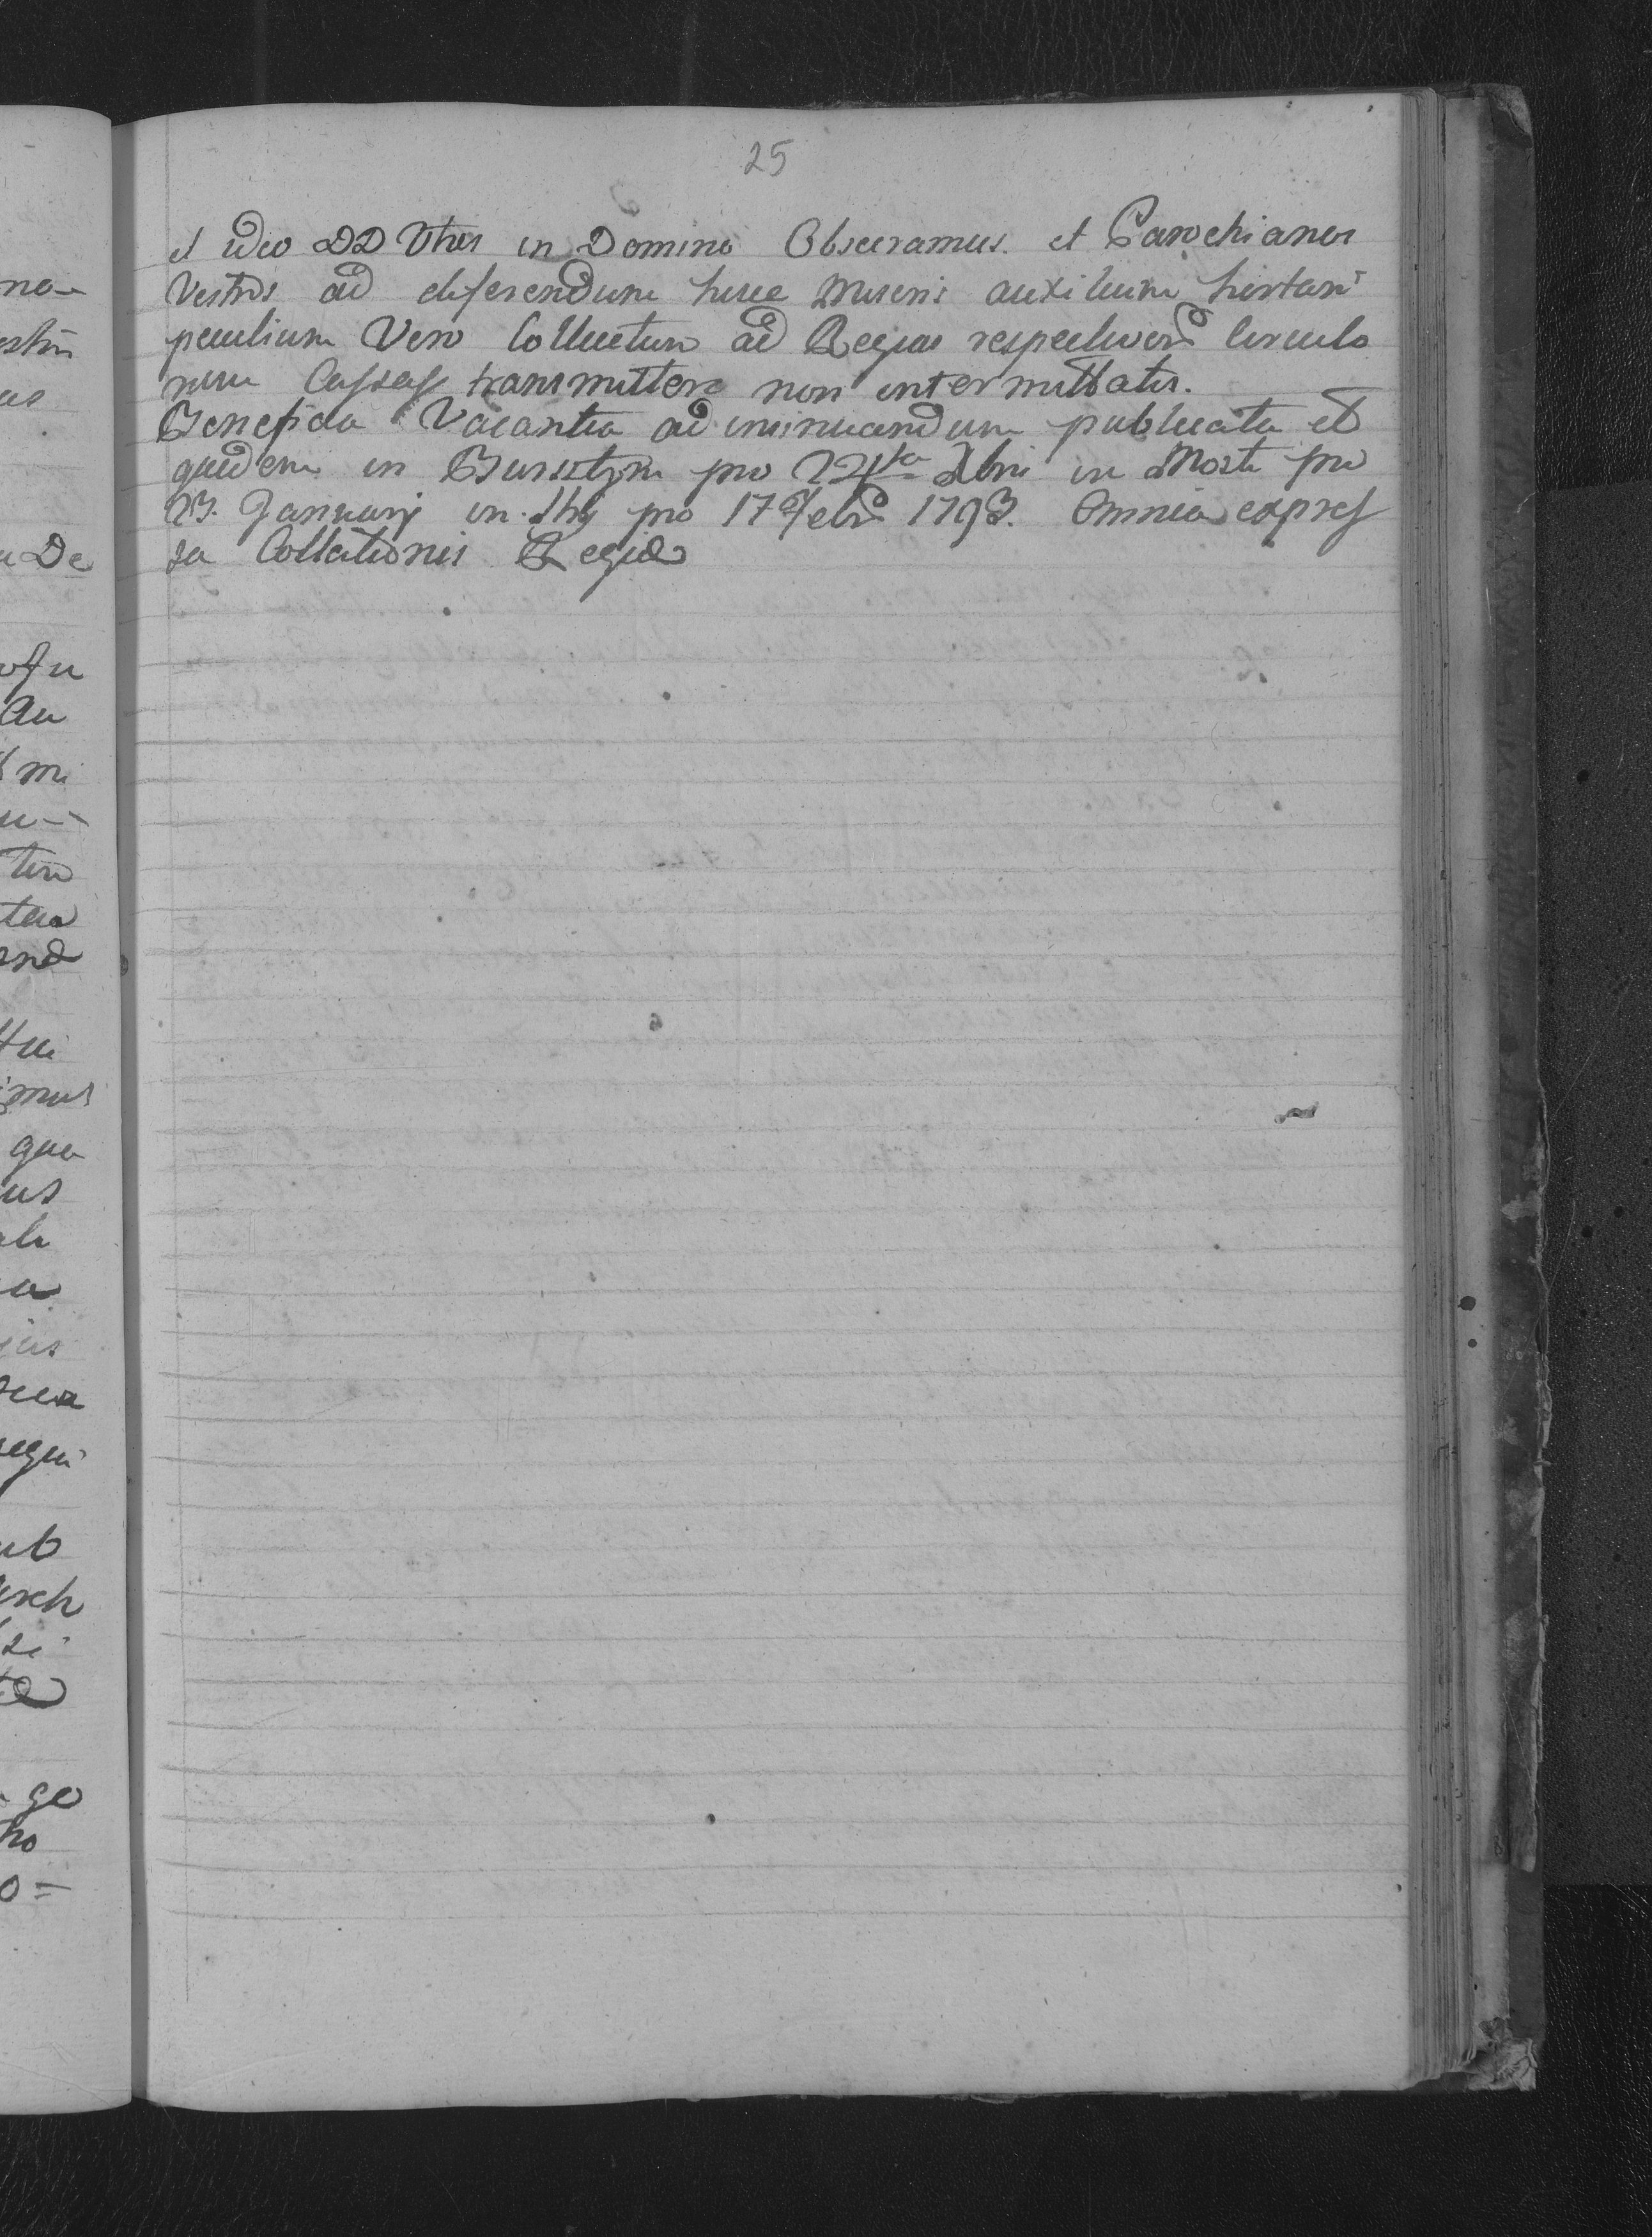 25
et ideo DD Vtres in Domino Obsecramus. et Parochianos
Vestros ad deferendum hisce Miseris auxilium hortari
peculium Vero Collectum ad Regias respectivord Circulo
rum Cassas transmittere non intermittatis.
Beneficia Vacantia ad insinuandum publicata et
quidem in Bursztyn pro 22 Xbris in Mosty pro
23. Januarij in pro 17 Febr 1793. Omnia expres
sa Collationis Regiæ
no-
us
De
Au
mi
tur
and
mus
que
us
a
sua
ub
si
go
no